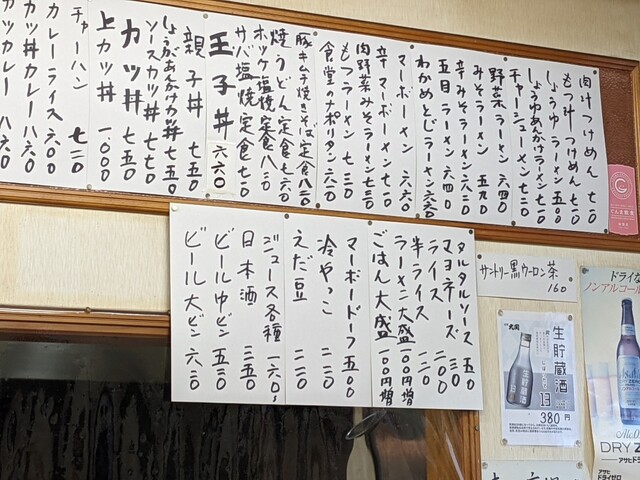 肉汁つけめん 七二〇
もつ汁つけめん 七二〇
しょうゆラーメン 五〇〇
しょうゆあんかけラーメン 七二〇
チャーシューメン 七二〇
野菜ラーメン 六四〇
みそラーメン 五九〇
辛みそラーメン 六二〇
五目ラーメン 六四〇
わかめとじラーメン 六六〇
マーボーメン 六六〇
辛マーボーメン 七一〇
肉野菜みそラーメン 七三〇
もつラーメン 七三〇
食堂のナポリタン 六八〇
豚キムチ焼きそば定食 八二〇
焼うどん定食 七六〇
ホッケ塩焼定食 八二〇
サバ塩焼定食 七二〇
玉子丼 六六〇
親子丼 七五〇
しょうがあんかけカツ丼 七五〇
ソースカツ丼 七七〇
カツ丼 七五〇
上カツ丼 一、〇〇〇
チャーハン 七二〇
カレーライス 六〇〇
カツ丼カレー 八六〇
カツカレー 八六〇
タルタルソース 五〇
マヨネーズ 三〇
ライス 二〇〇
半ライス 一二〇
ラーメン大盛 一〇〇円増
ごはん大盛 一〇〇円増
マーボードーフ 五〇〇
冷やっこ 二二〇
えだ豆 二二〇
ジュース各種 一六〇
日本酒 三五〇
ビール中ビン 五五〇
ビール大ビン 六二〇
サントリー黒ウーロン茶
160
生貯蔵酒
生貯蔵酒
13
380円
ドライな
ノンアルコール
Asahi
DRY ZE
アサヒ
ドライゼロ
アサヒドラ